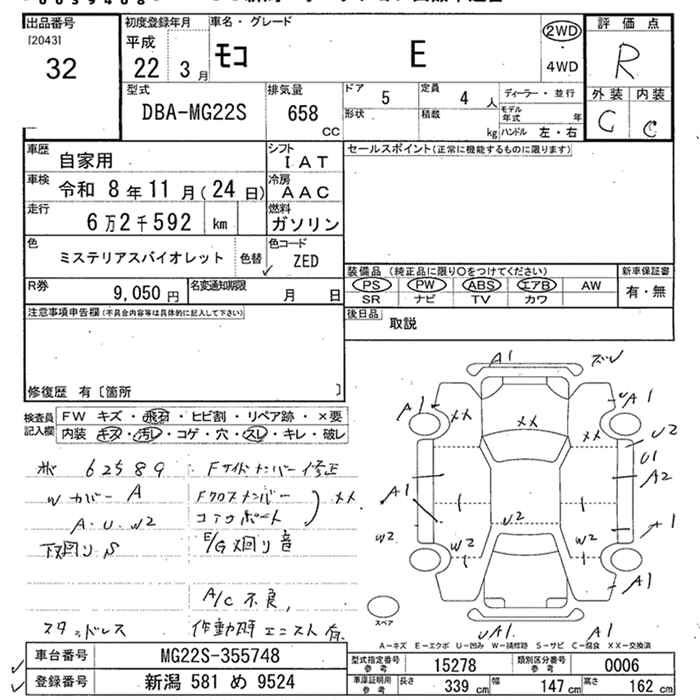 出品番号
[2043]
32
初度登録年月
平成
22 3月
車名・グレード
モコ E
2WD
・
4WD
評価点
R
外装 内装
C C
型式
DBA-MG22S
排気量
658
CC
ドア
5
定員
4 人
形状
積載
kg
ディーラー・並行
モデル年式 年
ハンドル 左・右
車歴
自家用
シフト
IAT
車検
令和 8年11月(24日)
冷房
AAC
走行
6万2千592 km
燃料
ガソリン
色
ミステリアスバイオレット
色替
色コード
ZED
R券
9,050円
名変通知期限
月 日
セールスポイント(正常に機能するものに限ります)
装備品 (純正品に限り○をつけてください)
PS PW ABS エアB AW
SR ナビ TV カワ
新車保証書
有・無
後日品
取説
注意事項申告欄(不具合内容等は具体的に記入して下さい)
修復歴 有〔箇所 〕
検査員
記入欄
FW キズ・飛石・ヒビ割・リペア跡・×要
内装 キズ・汚レ・コゲ・穴・スレ・キレ・破レ
62589
Fサイドメンバー修正
Wカバー A
Fクロスメンバー
コアサポート
XX
A・U・W2
下廻りS
E/G廻り音
A/C不良,
スタッドレス
作動時エンスト有
A1
ズレ
A1
XX
XX
XX
UA1
U2
U1
A2
A1
A1
U2
W2
W2
W2
A1
UA1
A1
スペア
A-キズ E-エクボ U-凹み W-補修跡 S-サビ C-腐食 XX-交換済
車台番号
MG22S-355748
登録番号
新潟 581 め 9524
型式指定番号
参考
15278
類別区分番号
参考
0006
車庫証明用
参考
長さ 339 cm 幅 147 cm 高さ 162 cm